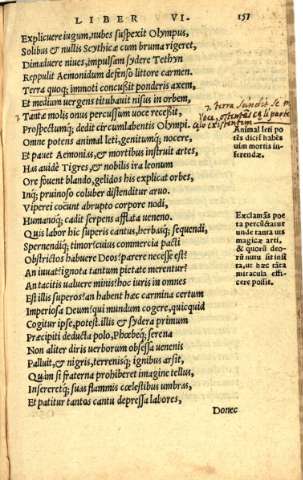 LIBER VI. 151
Explicuere iugum, nubes suspexit Olympus,
Solibus & nullis Scythicæ cum bruma rigeret,
Dimaduere niues, impulsam sydere Tethyn
Reppulit Aemonidum defenso littore carmen.
Terra quoq; immoti concussit ponderis axem,
Et medium uergens titubauit nisus in orbem,
Tanta molis onus percussum uoce recessit,
Prospectumq; dedit circumlabentis Olympi.
Omne potens animal leti, genitumq; nocere,
Et pauet Aemonias, & mortibus instruit artes,
Has auidæ Tigres, & nobilis ira leonum
Ore fouent blando, gelidos his explicat orbes,
Inq; pruinoso coluber distenditur aruo.
Viperei coëunt abrupto corpore nodi,
Humanoq; cadit serpens afflata ueneno.
Quis labor hic superis cantus, herbasq; sequendi,
Spernendiq; timor? cuius commercia pacti
Obstrictos habuere Deos? parere necesse est?
An iuuat? ignota tantum pietate merentur?
An tacitis ualuere minis? hoc iuris in omnes
Est illis superos? an habent hæc carmina certum
Imperiosa Deum? qui mundum cogere, quicquid
Cogitur ipse, potest. illis & sydera primum
Præcipiti deducta polo, Phœbeq; serena
Non aliter diris uerborum obsessa uenenis
Palluit, & nigris, terrenisq; ignibus arsit,
Quàm si fraterna prohiberet imagine tellus,
Insereretq; suas flammis cœlestibus umbras,
Et patitur tantos cantu depressa labores,
Donec
Animal leti po
tēs dicit habens
uim mortis in
ferendæ.
Exclamās poë
ta percūctatur
unde tanta uis
magicæ arti,
& quorū deo
rū numē sit inui
ta, ut hæc tāta
miracula effi
cere possit.